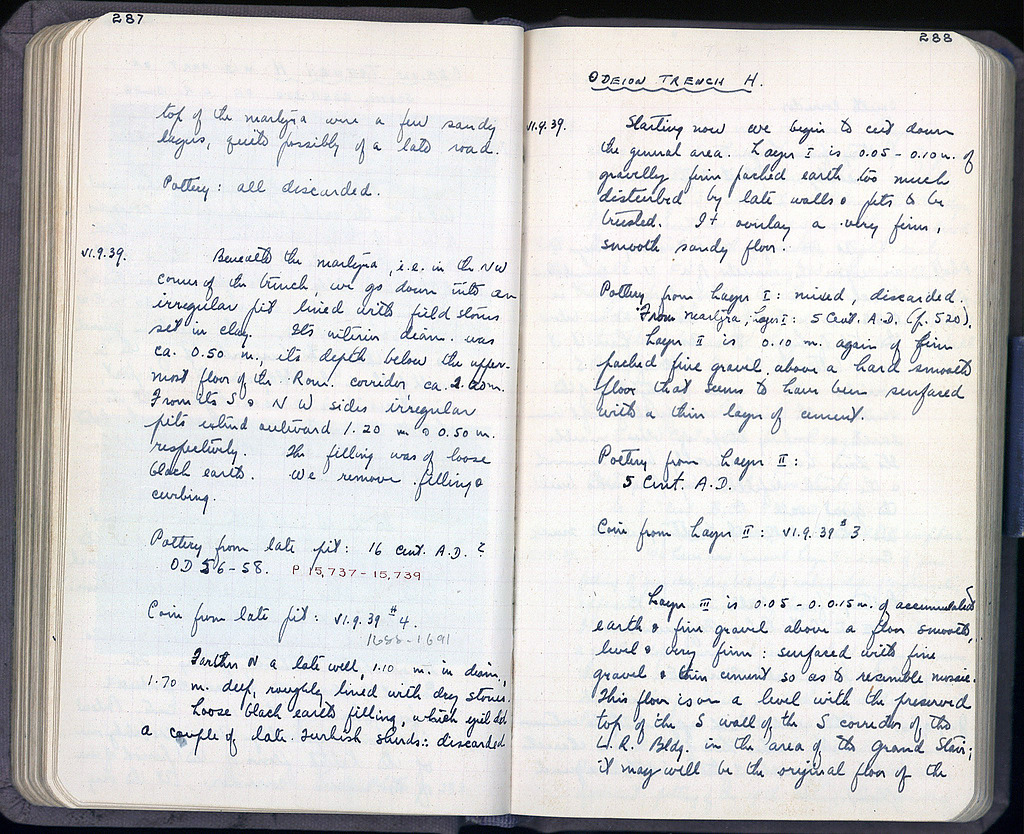 287
top of the martyra were a few sandy
layers, quite possibly of a late road.
Pottery: all discarded.
VI.9.39.
Beneath the martyra, i.e. in the NW
corner of the trench, we go down into an
irregular pit lined with field stones
set in clay. Its interior diam. was
ca. 0.50 m, its depth below the upper-
most floor of the Rom. corridor ca. 2.20m.
From its S & NW sides irregular
pits extend outward 1.20 m & 0.50 m.
respectively. The filling was of loose
black earth. We remove filling &
curbing.
Pottery from late pit: 16 Cent. A.D.?
OD 56-58. P 15,737-15,739
Coin from late pit: VI.9.39 #4.
1688-1691
Farther N a late well, 1.10 m. in diam.,
1.70 m. deep, roughly lined with dry stones.
Loose black earth filling, which yielded
a couple of late Turkish sherds: discarded
288
ODEION TRENCH H.
VI.9.39.
Starting now we begin to cut down
the general area. Layer I is 0.05-0.10 m. of
gravelly firm packed earth too much
disturbed by late walls & pits to be
trusted. It overlay a very firm,
smooth sandy floor.
Pottery from Layer I: mixed, discarded.
From martyra, Layer I: 5 Cent. A.D. (p. 520).
Layer II is 0.10 m. again of firm
packed fine gravel above a hard smooth
floor that seems to have been surfaced
with a thin layer of cement.
Pottery from Layer II:
5 Cent. A.D.
Coin from Layer II: VI.9.39 #3.
Layer III is 0.05-0.015 m. of accumulated
earth & fine gravel above a floor smooth,
level & very firm: surfaced with fine
gravel & thin cement so as to resemble mosaic.
This floor is on a level with the preserved
top of the S wall of the S corridor of the
L.R. Bldg. in the area of the Grand Stair;
it may well be the original floor of the